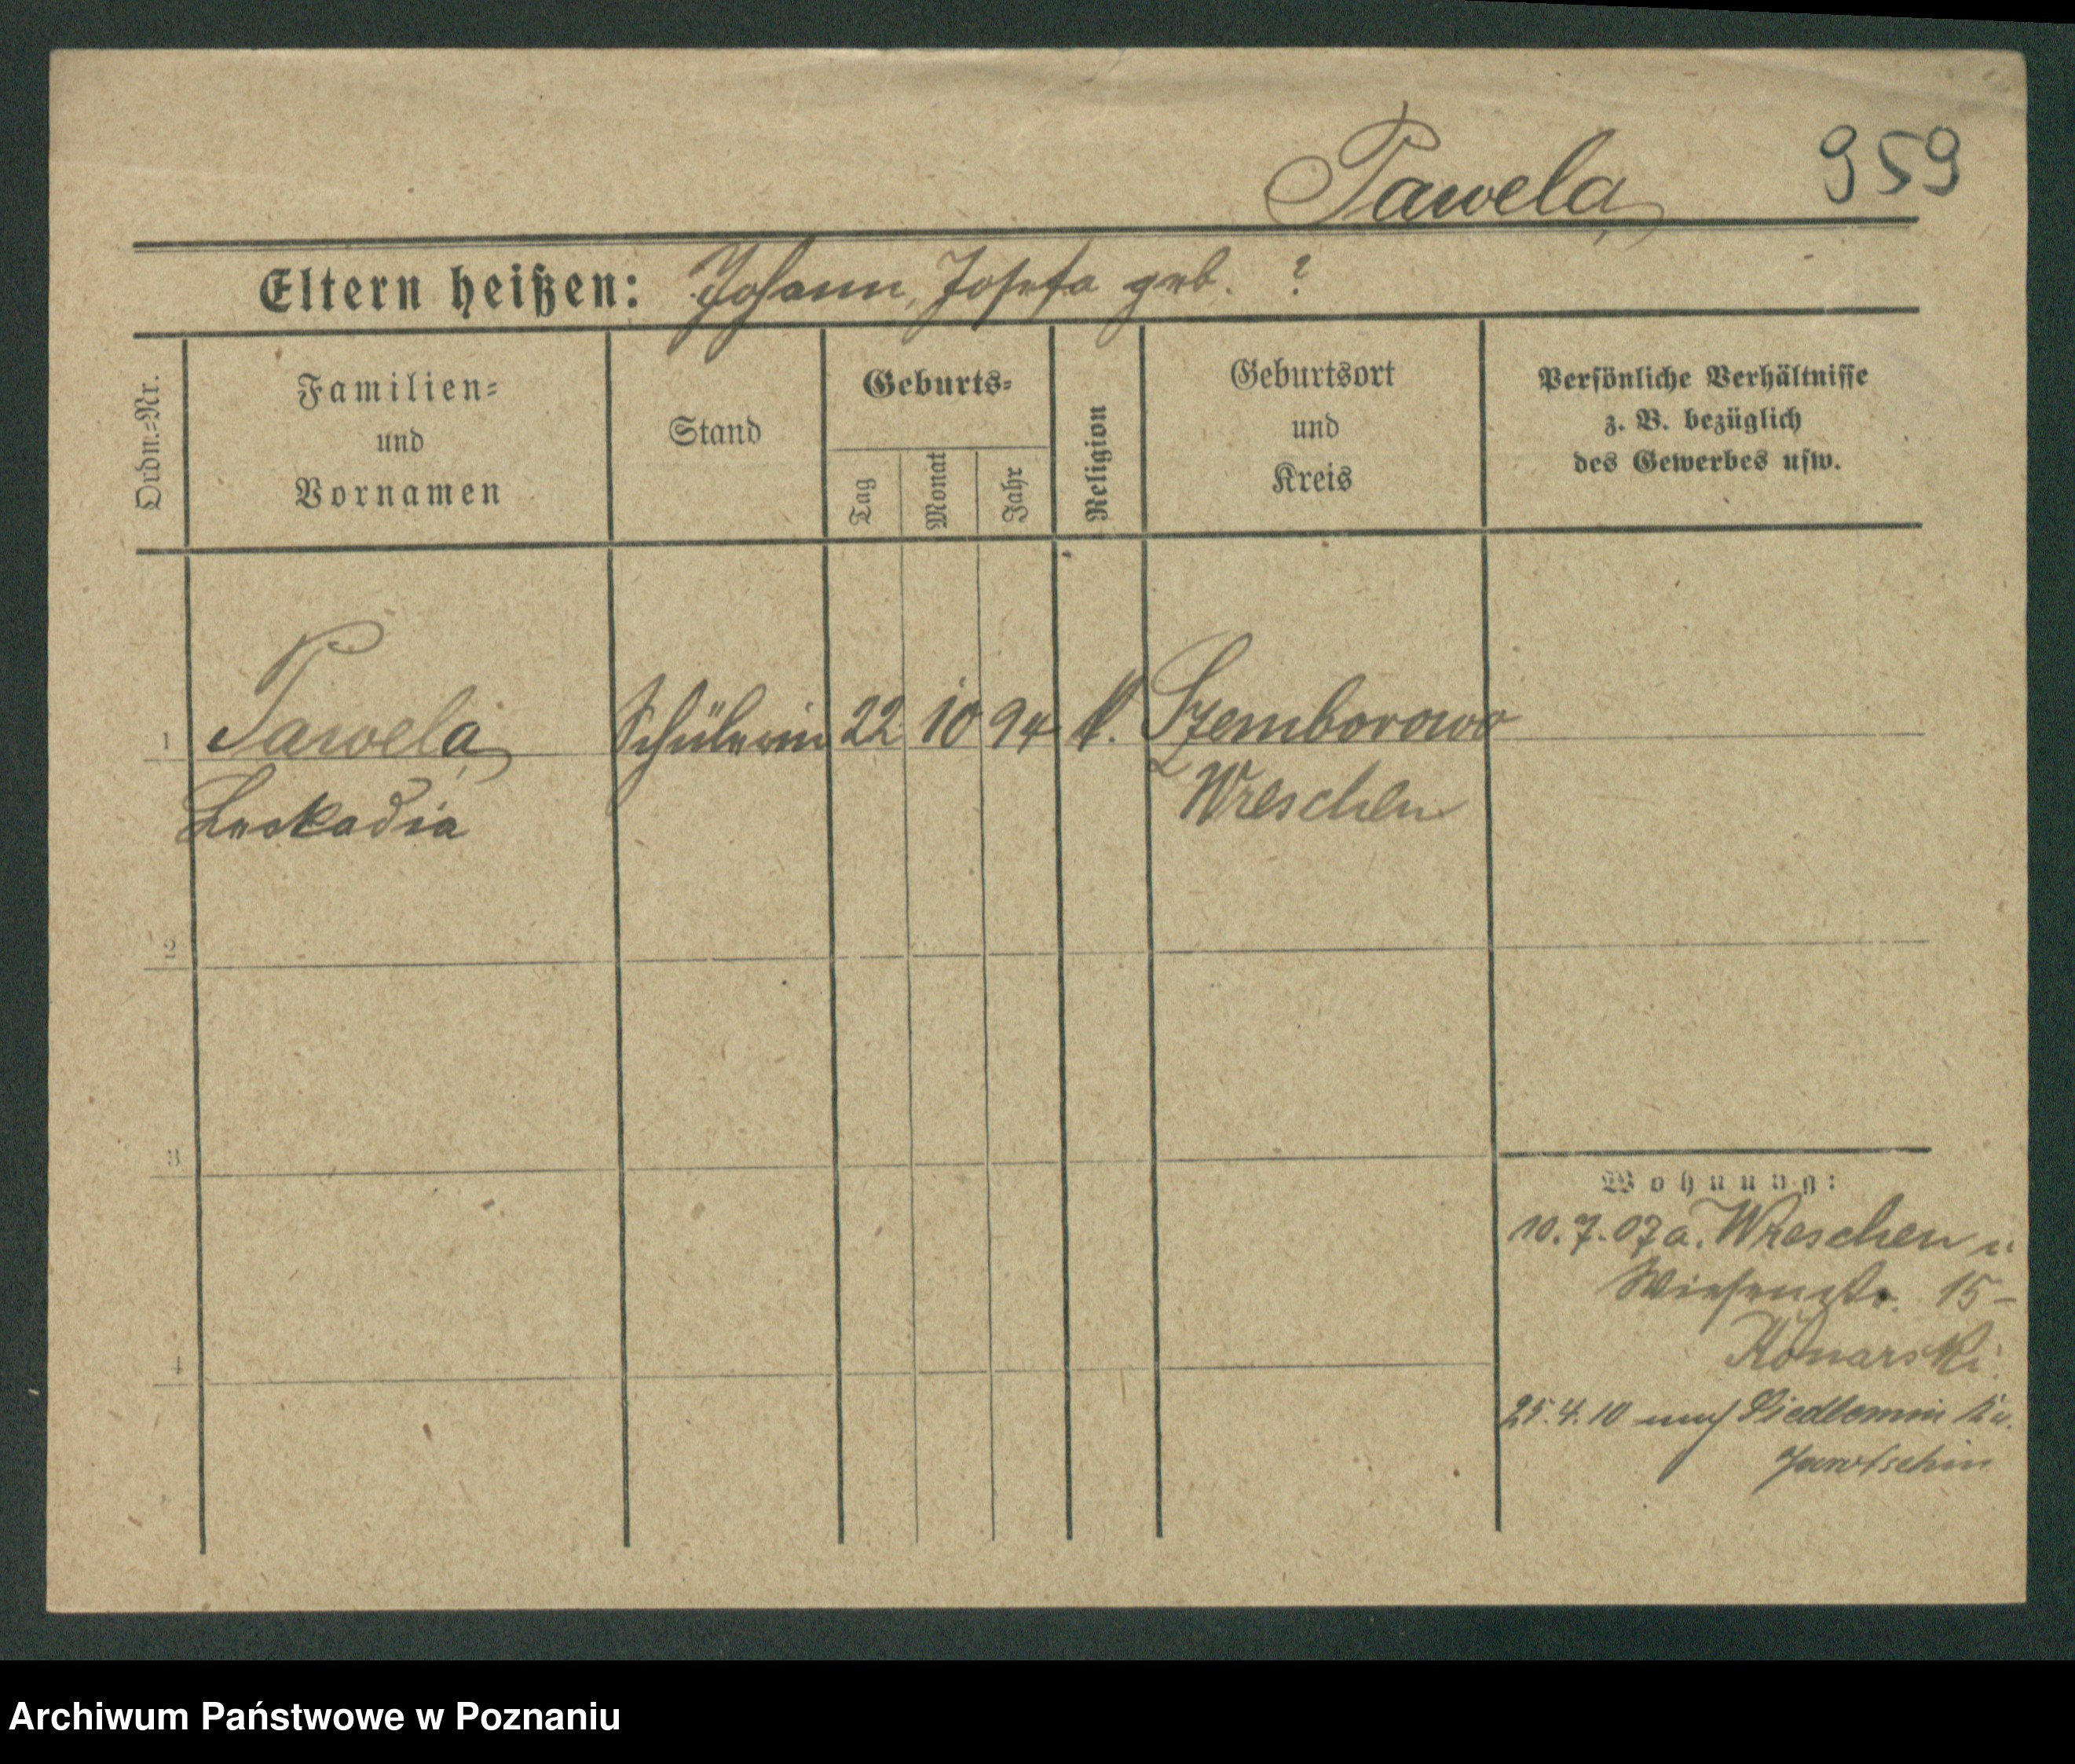 Pawela
959
Eltern heißen: Johann, Josefa geb. ?
Ordn.-Nr.
Familien-
und
Vornamen
Stand
Geburts-
Tag
Monat
Jahr
Religion
Geburtsort
und
Kreis
Persönliche Verhältnisse
z. B. bezüglich
des Gewerbes usw.
1 Pawela Schülerin 22 10 94 k. Szemborowo
Leokadia Wreschen
2
3
Wohnung:
10.7.07 a. Wreschen n
Wiesenstr. 15 -
Konarski.
4
25.4.10 nach Siedlemin
Jarotschin
Archiwum Państwowe w Poznaniu